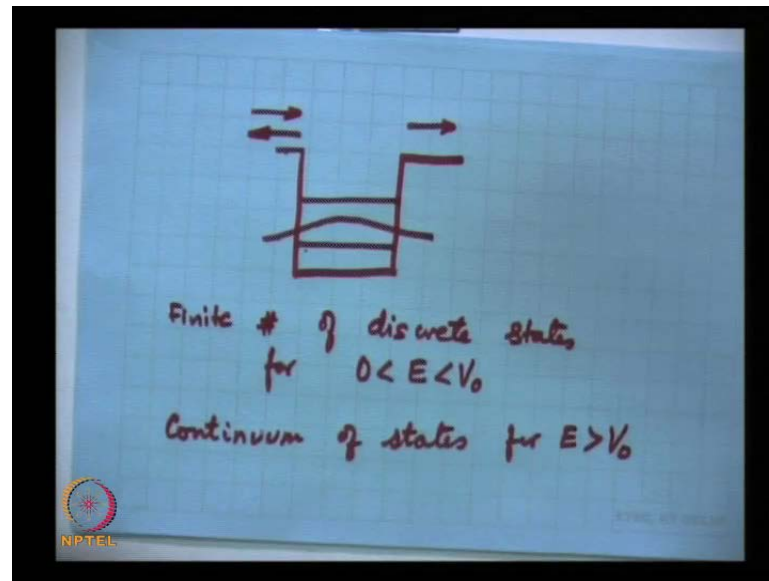 Finite # of discrete states
for 0 < E < V₀
Continuum of states for E > V₀
NPTEL